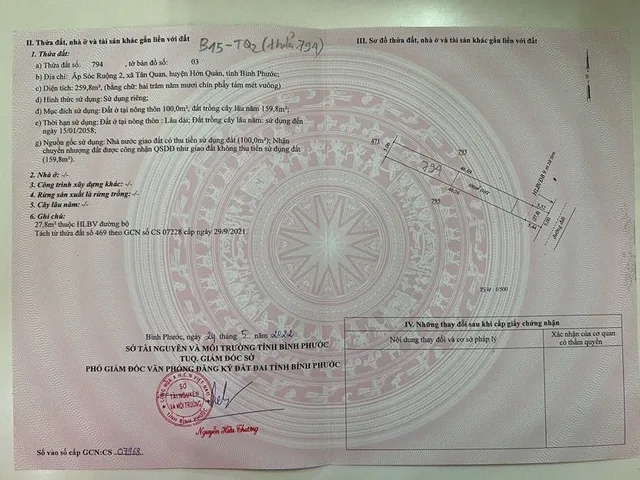 II. Thửa đất, nhà ở và tài sản khác gắn liền với đất
B15-TQ2 (thửa 794)
1. Thửa đất:
a) Thửa đất số: 794 , tờ bản đồ số: 03
b) Địa chỉ: Ấp Sóc Ruộng 2, xã Tân Quan, huyện Hớn Quản, tỉnh Bình Phước;
c) Diện tích: 259,8m², (bằng chữ: hai trăm năm mươi chín phẩy tám mét vuông)
d) Hình thức sử dụng: Sử dụng riêng;
đ) Mục đích sử dụng: Đất ở tại nông thôn 100,0m²; đất trồng cây lâu năm 159,8m²;
e) Thời hạn sử dụng: Đất ở tại nông thôn : Lâu dài; Đất trồng cây lâu năm: sử dụng đến
ngày 15/01/2058;
g) Nguồn gốc sử dụng: Nhà nước giao đất có thu tiền sử dụng đất (100,0m²); Nhận
chuyển nhượng đất được công nhận QSDĐ như giao đất không thu tiền sử dụng đất
(159,8m²).
2. Nhà ở: -/-
3. Công trình xây dựng khác: -/-
4. Rừng sản xuất là rừng trồng: -/-
5. Cây lâu năm: -/-
6. Ghi chú:
27,8m² thuộc HLBV đường bộ
Tách từ thửa đất số 469 theo GCN số CS 07228 cấp ngày 29/9/2021.
Bình Phước, ngày 24 tháng 5 năm 2022
SỞ TÀI NGUYÊN VÀ MÔI TRƯỜNG TỈNH BÌNH PHƯỚC
TUQ. GIÁM ĐỐC SỞ
PHÓ GIÁM ĐỐC VĂN PHÒNG ĐĂNG KÝ ĐẤT ĐAI TỈNH BÌNH PHƯỚC
SỞ
TÀI NGUYÊN
VÀ MÔI TRƯỜNG
TỈNH BÌNH PHƯỚC
Nguyễn Hữu Thương
Số vào sổ cấp GCN:CS 07968
III. Sơ đồ thửa đất, nhà ở và tài sản khác gắn liền với đất
471
793
794
795
HLBV-ĐB 9 m từ tim
đường đất
TỶ LỆ : 1/500
IV. Những thay đổi sau khi cấp giấy chứng nhận
Nội dung thay đổi và cơ sở pháp lý
Xác nhận của cơ quan
có thẩm quyền